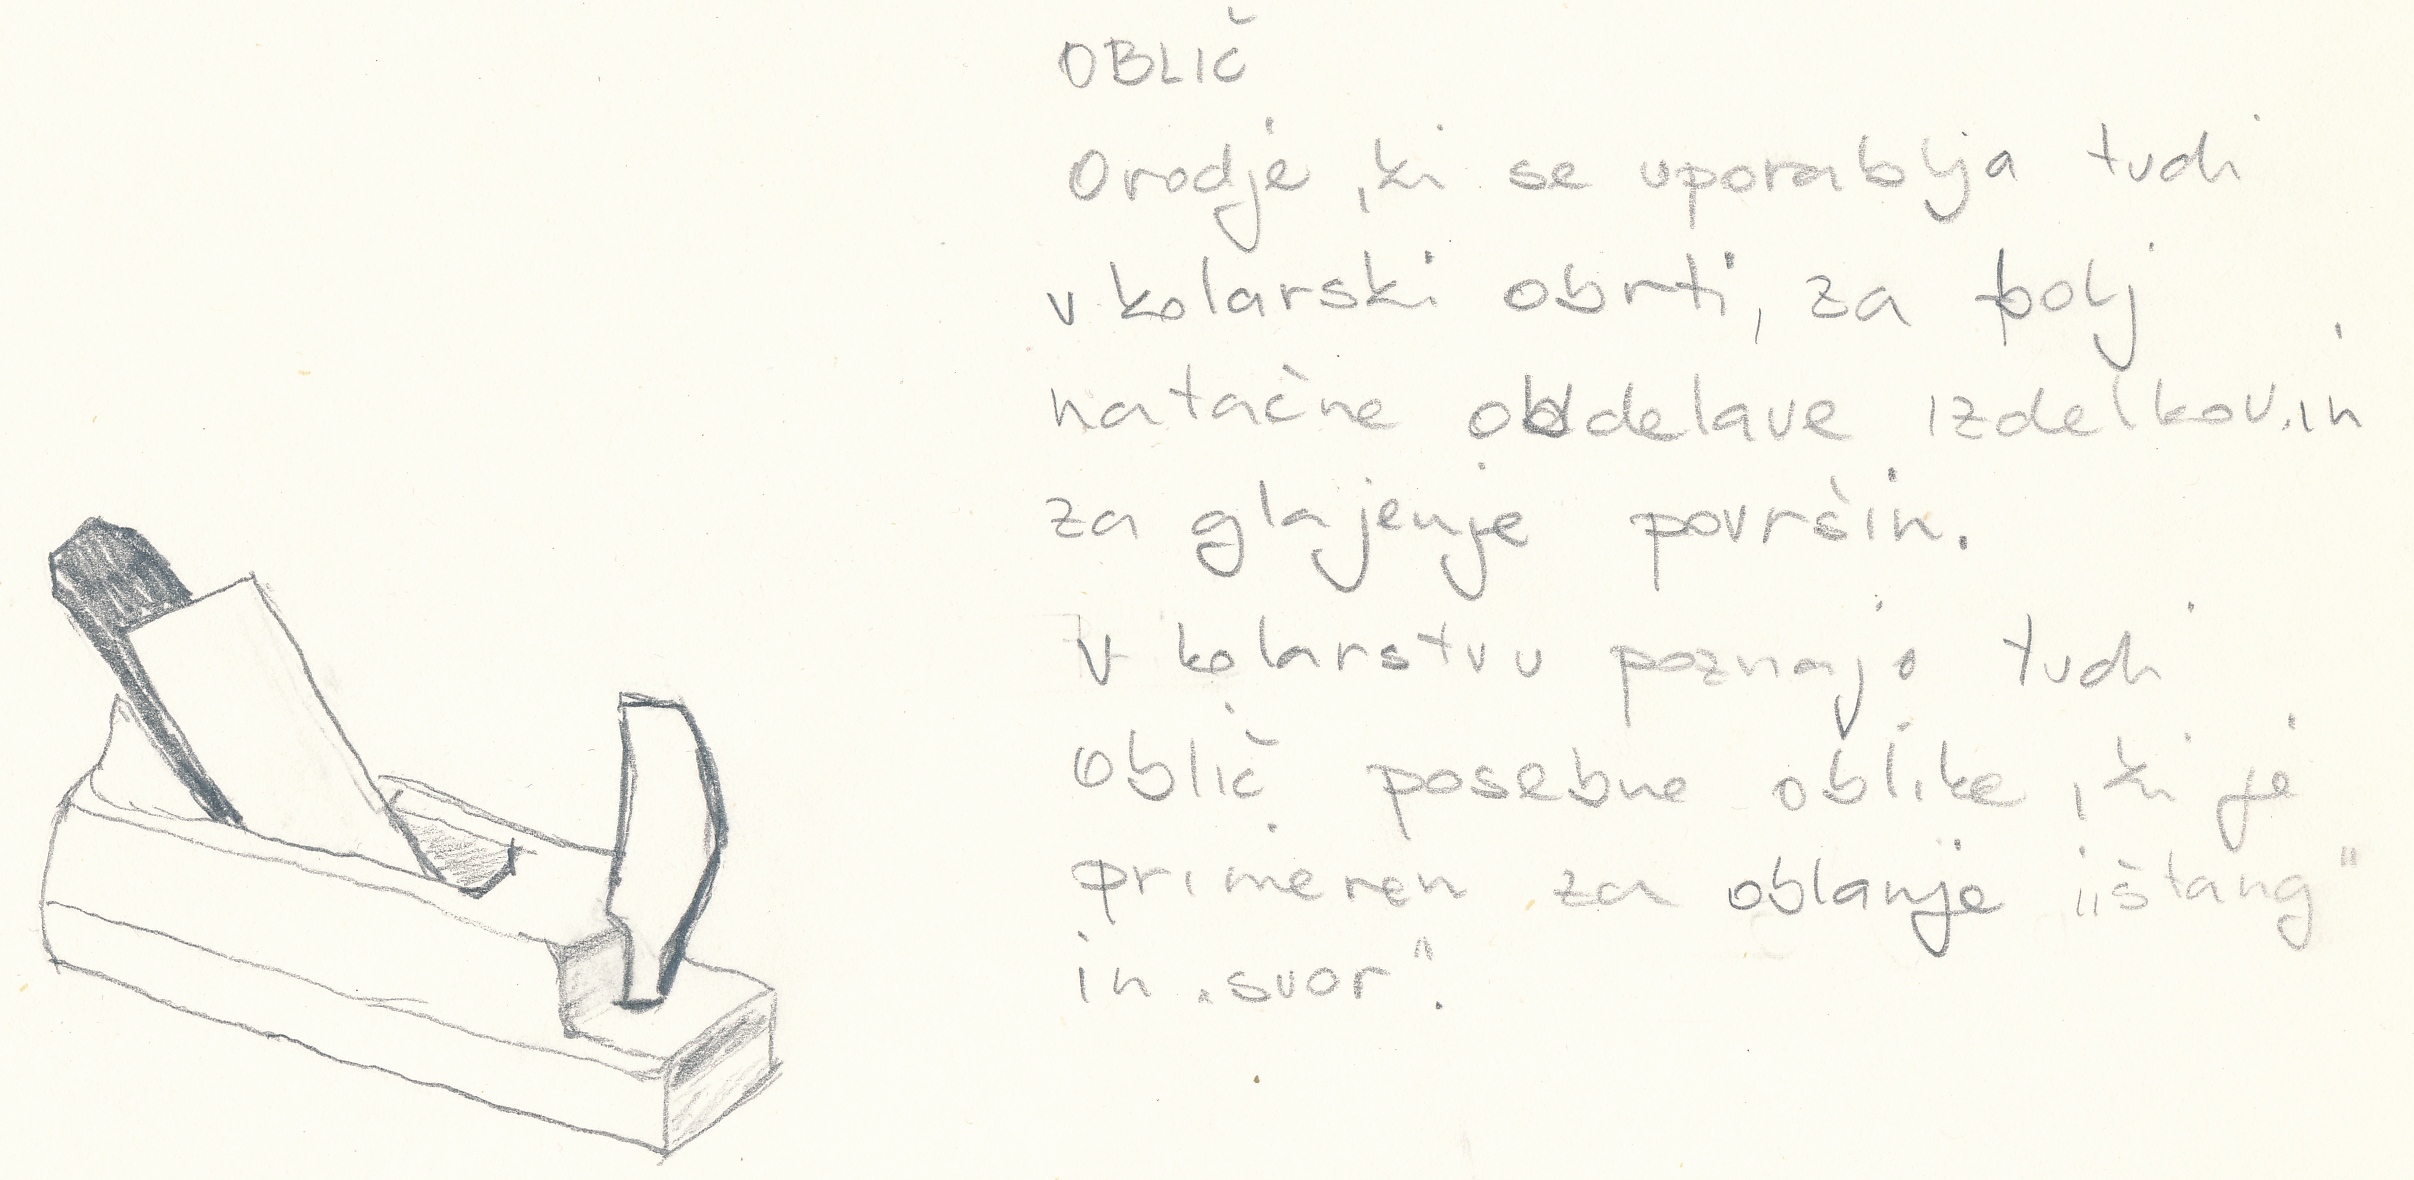 OBLIČ
Orodje, ki se uporablja tudi
v kolarski obrti, za bolj
natačne obdelave izdelkov in
za glajenje površin.
V kolarstvu poznajo tudi
oblič posebne oblike, ki je
primeren za oblanje „štang"
in „svor".